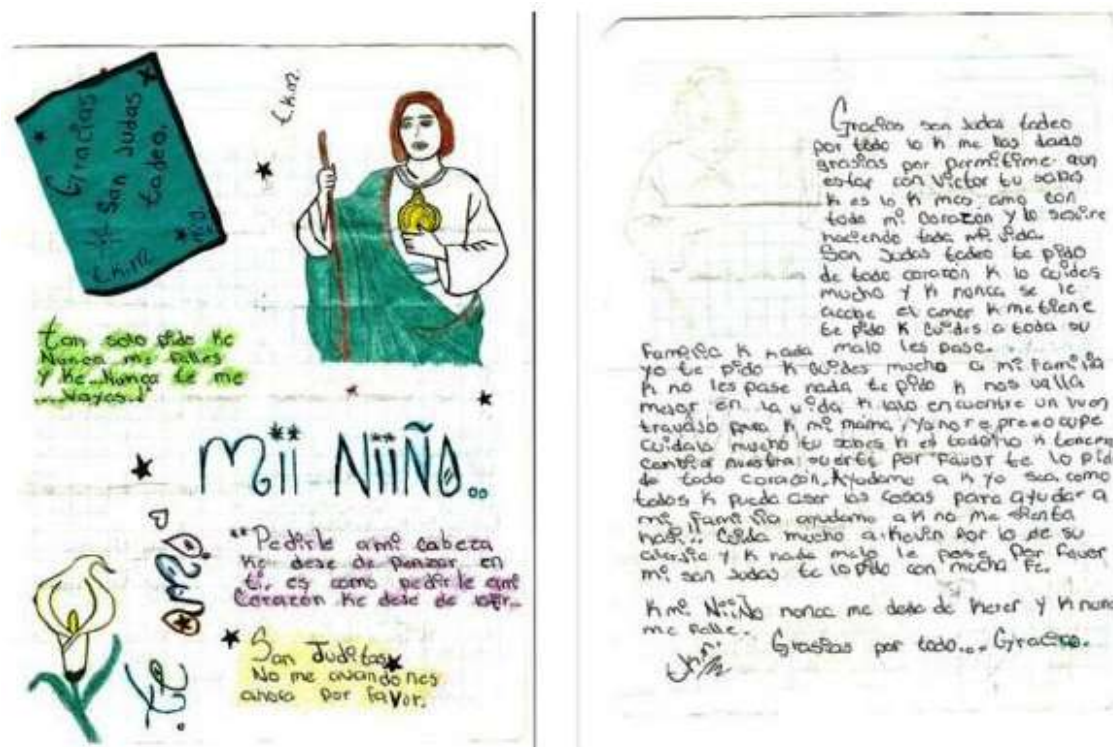 Gracias
San Judas
tadeo.
t.k.m
t.k.m.
tan solo pido Ke
Nunca me falles
y Ke Nunca te me
Vayas..!
Mii NiiÑo..
"Pedirle a mi cabeza
Ke deje de penzar en
ti, es como pedirle ami
Corazón Ke deje de latir..
Te
San Juditas
No me avandones
ahora por favor.
Gracias san Judas tadeo
por todo lo k me has dado
grasias por permitime aun
estar con Victor tu sabes
k es lo k mas amo con
todo mi Corazon y lo seguire
haciendo toda mi vida.
San Judas tadeo te pido
de todo corazon k lo cuides
mucho y k nunca se le
acabe el amor k me tiene
te pido k cuides a toda su
familia k nada malo les pase.
yo te pido k cuides mucho a mi familia
k no les pase nada te pido k nos valla
mejor en la vida k lalo encuentre un vuen
travajo para k mi mama, ya no se preocupe
Cuidala mucho tu sabes k es todo lo k tenemos
Cambia nuestra suerte por favor te lo pido
de todo corazon. Ayudame a k yo sea como
todos k pueda aser las cosas para ayudar a
mi familia ayudame a k no me sienta
mal.. Cuida mucho a Kevin por lo de su
alergia y k nada malo le pase Por favor
mi san Judas te lo pido con mucha Fe.
k mi NiiÑo nunca me deje de Kerer y k nunca
me falle.
Grasias por todo... Gracias.